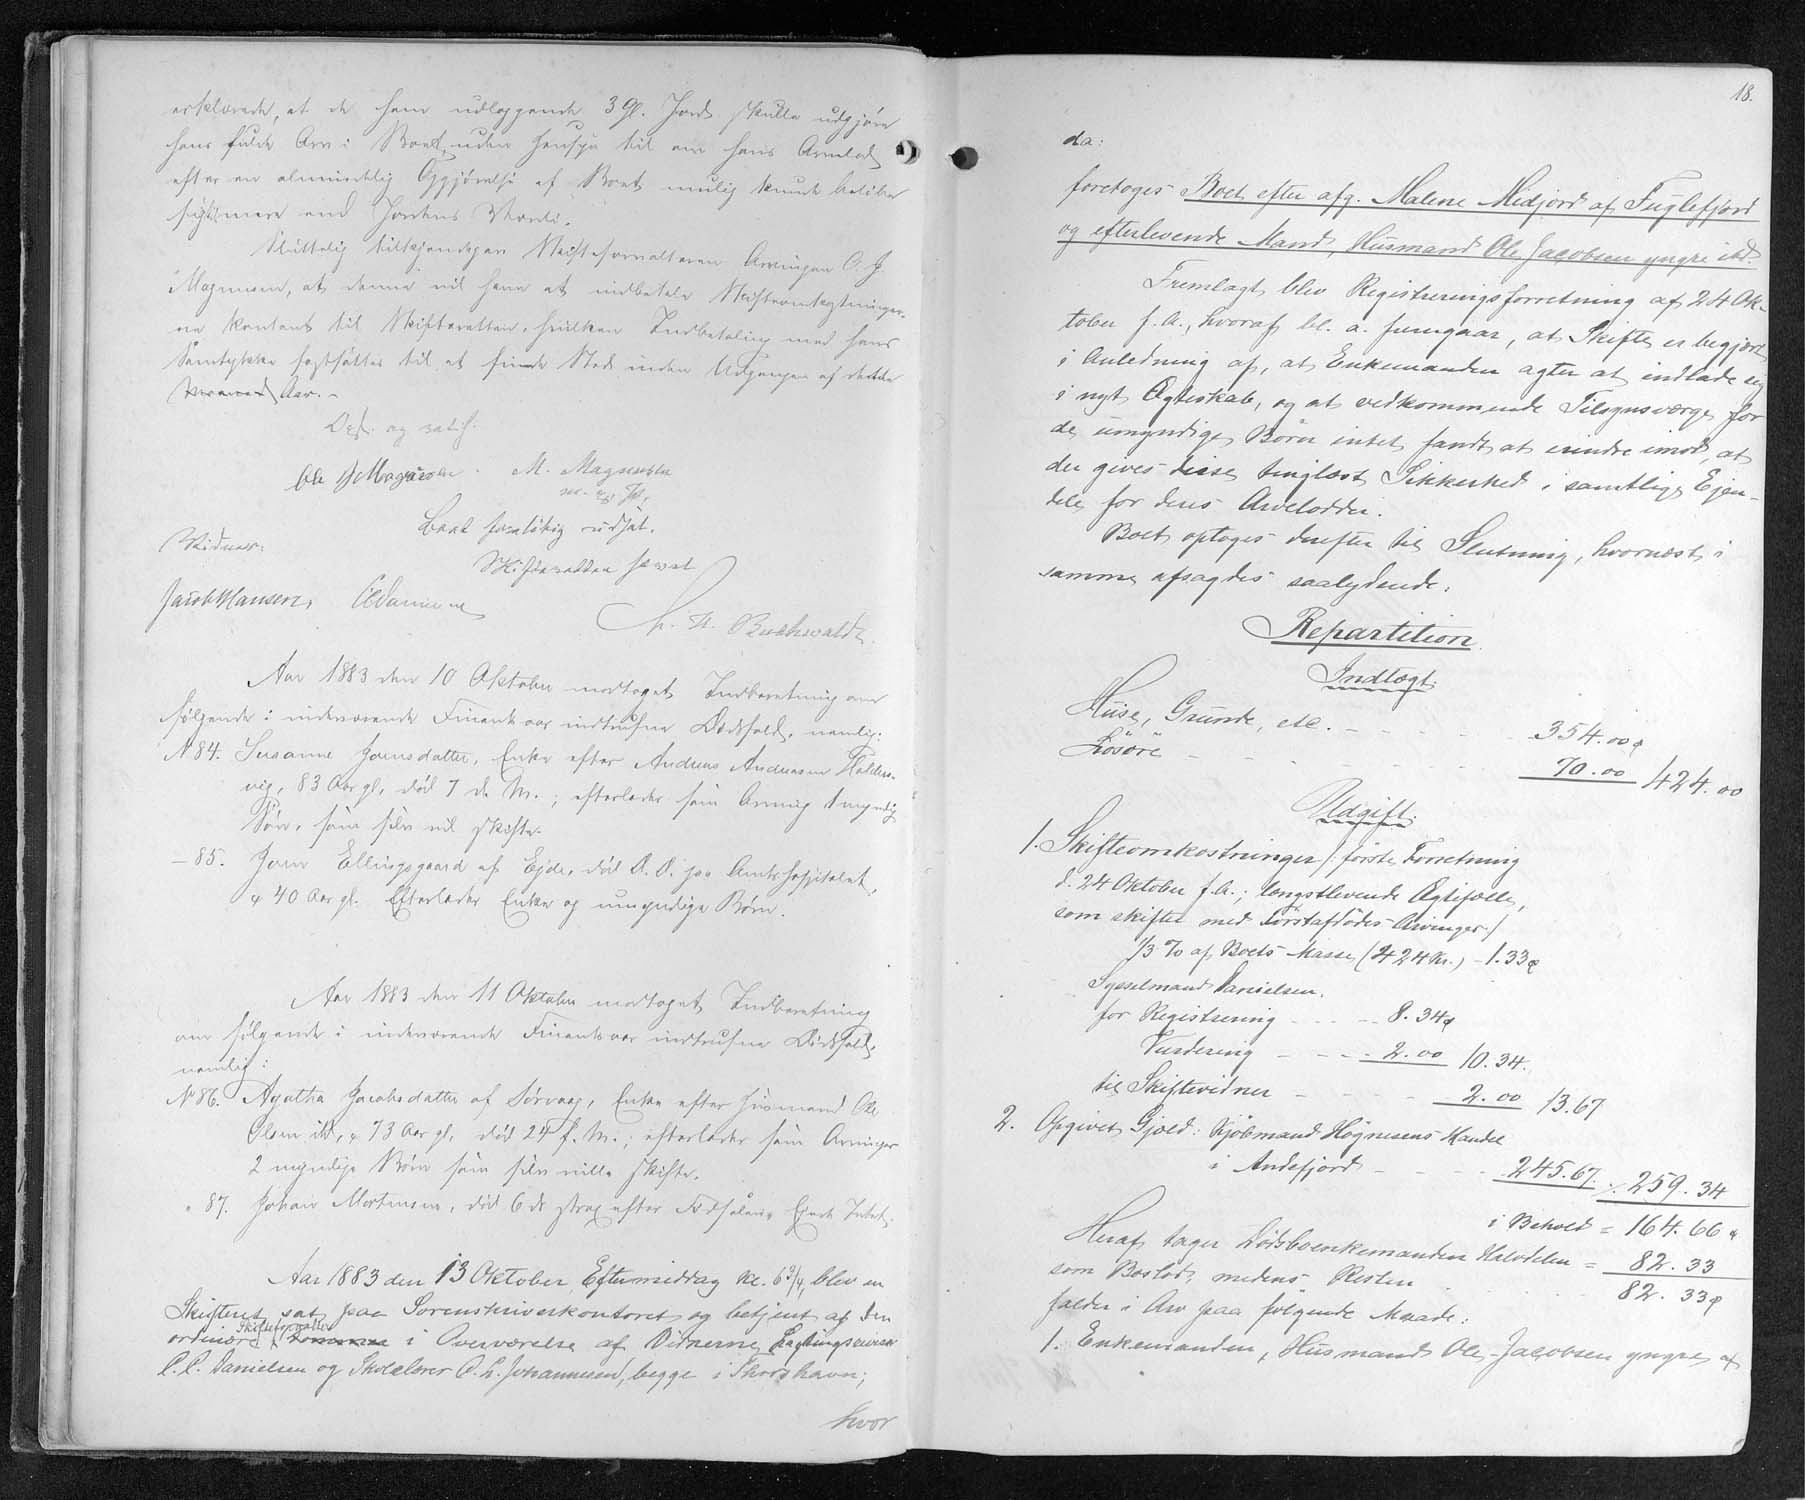 erklærede, at de ham udlæggende 3 Gl. Jord skulle udgjøre
hans fulde Arv i Boet, uden Hensyn til om hans Arvelod
efter en almindelig Opgjørelse af Boet mulig kunde beløbe
sig til mere end Jordens Værdi.
Sluttelig tilkjendegav Skifteforvalteren Arvingen O. J.
Magnussen, at denne vil have at indbetale Skifteomkostninger-
ne kontant til Skifteretten, hvilken Indbetaling med hans
Samtykke fastsættes til at finde Sted inden Udgangen af dette
Aar.
Opl. og ratif.
Ole J Magnussen. M. Magnussen
Boet foreløbig udsat.
Vidner: Skifteretten hævet
Jacob Hansen, CDanielsen
Buchwaldt.
Aar 1883 den 10 Oktober modtoget Indberetning om
følgende i indeværende Finantsaar indtrufne Dødsfald, nemlig:
No 84. Susanne Joensdatter, Enke efter Andreas Andreasen Halders-
vig, 83 Aar gl., død 7 d. M.; efterlader som Arving 1 myndig
Søn, som selv vil skifte.
- 85. Joen Ellingsgaard af Ejde, død D. D. paa Amtshospitalet,
40 Aar gl. Efterlader Enke og umyndige Børn.
Aar 1883 den 11 Oktober modtoget Indberetning
om følgende i indeværende Finantsaar indtrufne Dødsfald,
nemlig:
No 86. Agatha Jacobsdatter af Sørvaag, Enke efter Husmand Ole
Olsen ibd., 73 Aar gl., død 24 f. M.; efterlader som Arvinger
2 myndige Børn som selv ville skifte.
" 87. Johan Mortensen, død 6 ds strax efter Fødselen. Ejede Intet.
Aar 1883 den 13 Oktober Eftermiddag Kl. 6 3/4, blev en
Skifteret sat paa Sorenskriverkontoret og betjent af den
ordinære Skifteforvalter i Overværelse af Vidnerne, Lagtingsrevisor
C. C. Danielsen og Skolelærer O. L. Johannesen, begge i Thorshavn;
hvor
18.
da:
foretoges Boet efter afg. Malene Midjord af Fuglefjord
og efterlevende Mand, Husmand Ole Jacobsen yngre ibd.
Fremlagt blev Registreringsforretning af 24 Ok-
tober f. A., hvoraf bl. a. fremgaar, at Skifte er begjært
i Anledning af, at Enkemanden agter at indlade sig
i nyt Ægteskab, og at vedkommende Tilsynsværge for
de umyndige Børn intet fandt at erindre imod, at
der gives disse tinglæst Sikkerhed i samtlige Ejen-
dele for deres Arvelodder.
Boet optoges derefter til Slutning, hvornæst i
samme afsagdes saalydende:
Repartition
Indtægt:
Huse, Grunde, etc. - - - - - 354.00
Løsøre - - - - - - 70.00 424.00
Udgift:
1. Skifteomkostninger /: første Forretning
d. 24 Oktober f. A.; længstlevende Ægtefælle,
som skifter med Førstafdødes Arvinger :/
1/3 % af Boets Masse (424 Kr.) - 1.33
Sysselmand Danielsen:
for Registrering - - - 8.34
Vurdering - - - 2.00 10.34.
til Skiftevidner - - - 2.00 13.67
2. Opgivet Gjæld: Kjøbmand Høgnesens Handel
i Andefjord - - - - 245.67. 259.34
i Behold = 164.66
Heraf tager Dødsboenkemanden Halvdelen = 82.33
som Boslod, medens Resten 82.33
falder i Arv paa følgende Maade:
1. Enkemanden, Husmand Ole Jacobsen yngre af